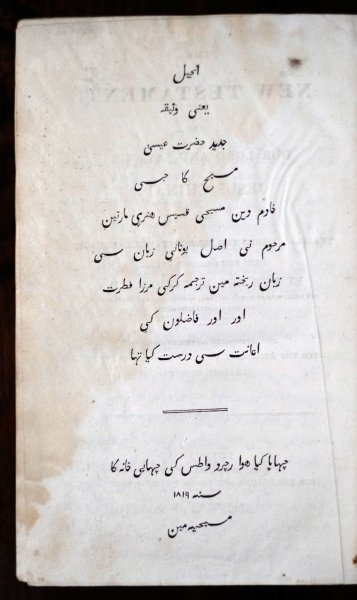 انجیل
یعني وثیقه
جدید حضرت عیسیٰ
مسیح کا جسي
خادم دین مسیحي قسیس هنري مارتین
مرحوم ني اصل یوناني زبان سي
زبان ریخته مین ترجمه کرکي مرزا فطرت
اور اور فاضلون کي
اعانت سي درست کیا تها
چهاپا کیا هوا رچرد واطس کي چهاپي خانه کا
سنه ۱۸۱۹
مسحیه مین